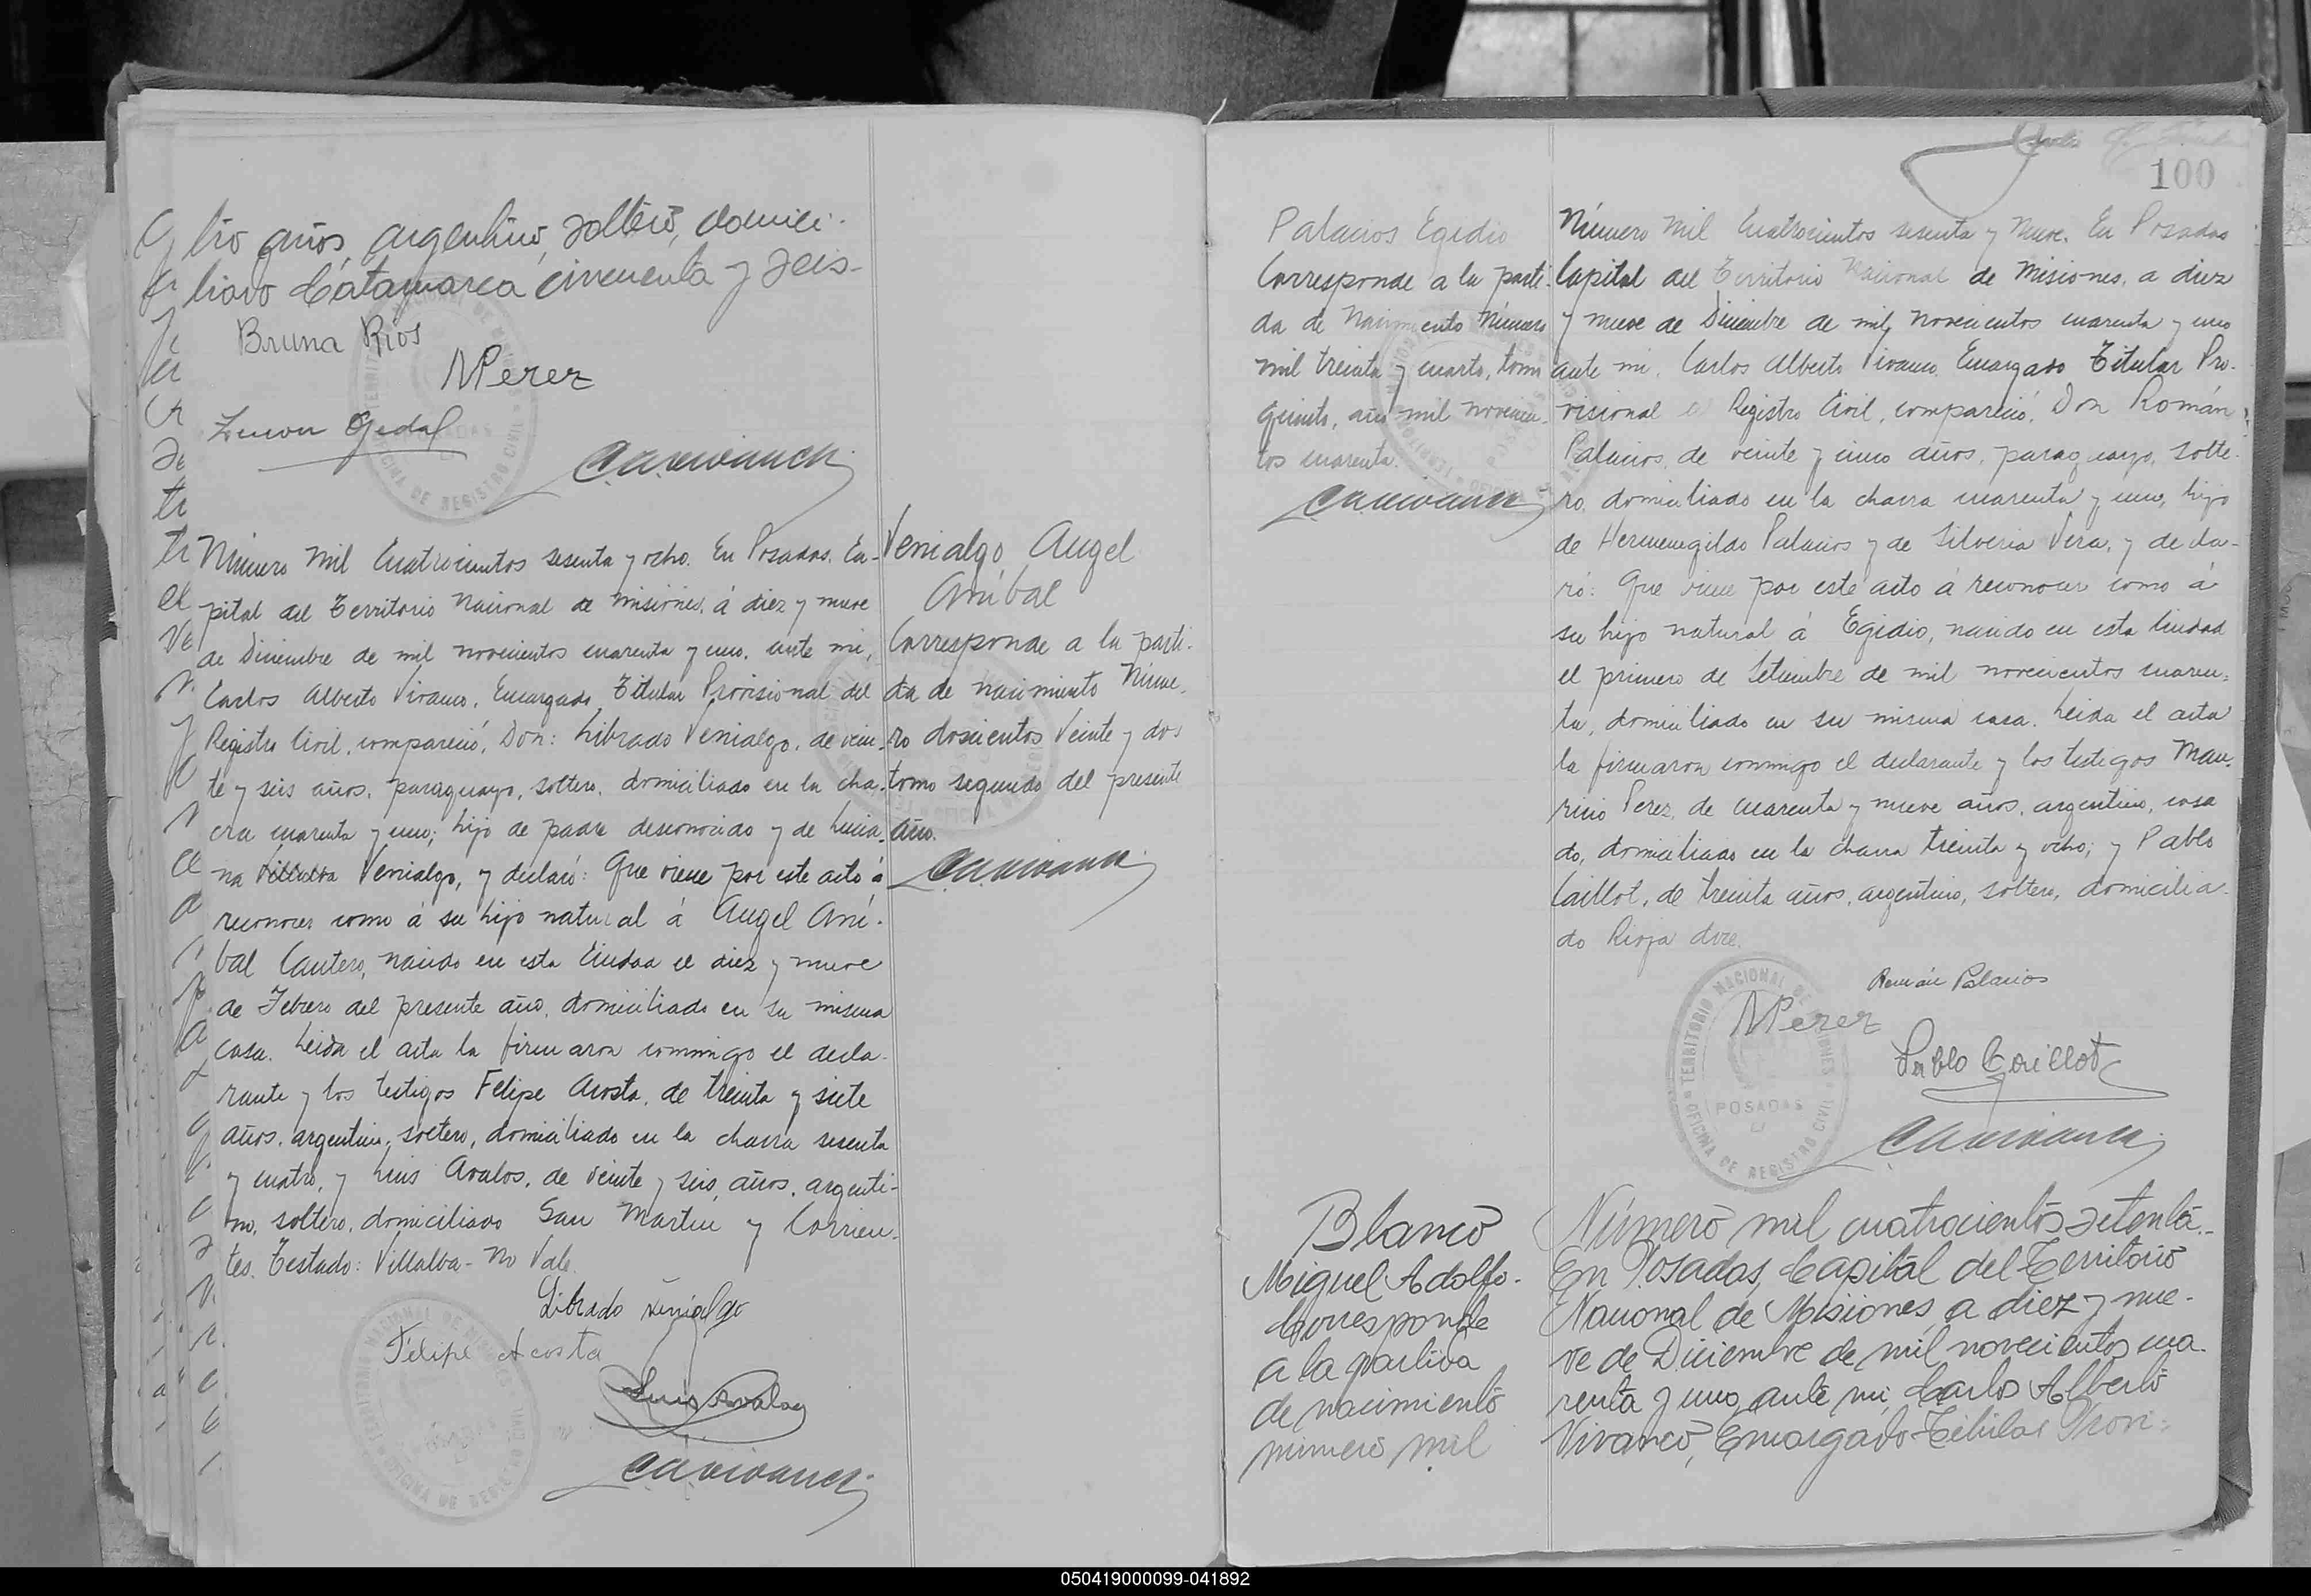 tro años, argentino, soltero, domici-
liado Catamarca cincuenta y seis-
Bruna Ríos
MPerez
Gedal
CAVivanco
Número Mil Cuatrocientos sesenta y ocho. En Posadas, Ca-
pital del Territorio Nacional de Misiones, á diez y nueve
de Diciembre de mil novecientos cuarenta y uno, ante mi,
Carlos Alberto Vivanco, Encargado Titular Provisional del
Registro Civil, compareció, Don: Librado Venialgo, de vein-
te y seis años, paraguayo, soltero, domiciliado en la cha-
cra cuarenta y uno; hijo de padre desconocido y de Lucia-
na Villalba Venialgo, y declaró: Que viene por este acto á
reconocer como á su hijo natural á Angel Aní-
bal Cantero, nacido en esta Ciudad el diez y nueve
de Febrero del presente año, domiciliado en su misma
casa. Leida el acta la firmaron conmigo el decla-
rante y los testigos Felipe Acosta, de treinta y siete
años, argentino, soltero, domiciliado en la chacra sesenta
y cuatro, y Luis Avalos, de veinte y seis años, argenti-
no, soltero, domiciliado San Martin y Corrien-
tes. Testado: Villalba - No Vale.
Librado Venialgo
Felipe Acosta
Luis Avalos
CAVivanco
Venialgo, Angel
Aníbal
Corresponde a la parti-
da de nacimiento Núme-
ro doscientos Veinte y dos
tomo segundo del presente
año.
CAVivanco
100
Palacios Egidio
Corresponde a la parti-
da de Nacimiento Número
mil treinta y cuarto, tomo
quinto, año mil novecien-
tos cuarenta.
CAVivanco
Número Mil Cuatrocientos sesenta y Nueve. En Posadas
Capital del Territorio Nacional de Misiones, a diez
y nueve de Diciembre de mil novecientos cuarenta y uno
ante mi, Carlos Alberto Vivanco, Encargado Titular Pro-
visional Registro Civil, compareció, Don Román
Palacios, de veinte y cinco años, paraguayo, solte-
ro, domiciliado en la chacra cuarenta y uno, hijo
de Hermenegildo Palacios y de Silveria Vera, y decla-
ró: Que viene por este acto á reconocer como á
su hijo natural á Egidio, nacido en esta Ciudad
el primero de Setiembre de mil novecientos cuaren-
ta, domiciliado en su misma casa. Leida el acta
la firmaron conmigo el declarante y los testigos Mau-
ricio Perez, de cuarenta y nueve años, argentino, casa
do, domiciliado en la chacra treinta y ocho; y Pablo
Caillot, de treinta años, argentino, soltero, domicilia-
do Rioja doce.
Román Palacios
MPerez
Pablo Caillot
TERRITORIO NACIONAL DE MISIONES
POSADAS
OFICINA DE REGISTRO CIVIL
CAVivanco
Blanco
Miguel Adolfo-
Corresponde
a la partida
de nacimiento
número mil
Número mil cuatrocientos setenta.-
En Posadas, Capital del Territorio
Nacional de Misiones, a diez y nue-
ve de Diciembre de mil novecientos cua-
renta y uno, ante mi, Carlos Alberto
Vivanco, Encargado Titular Provi-
050419000099-041892